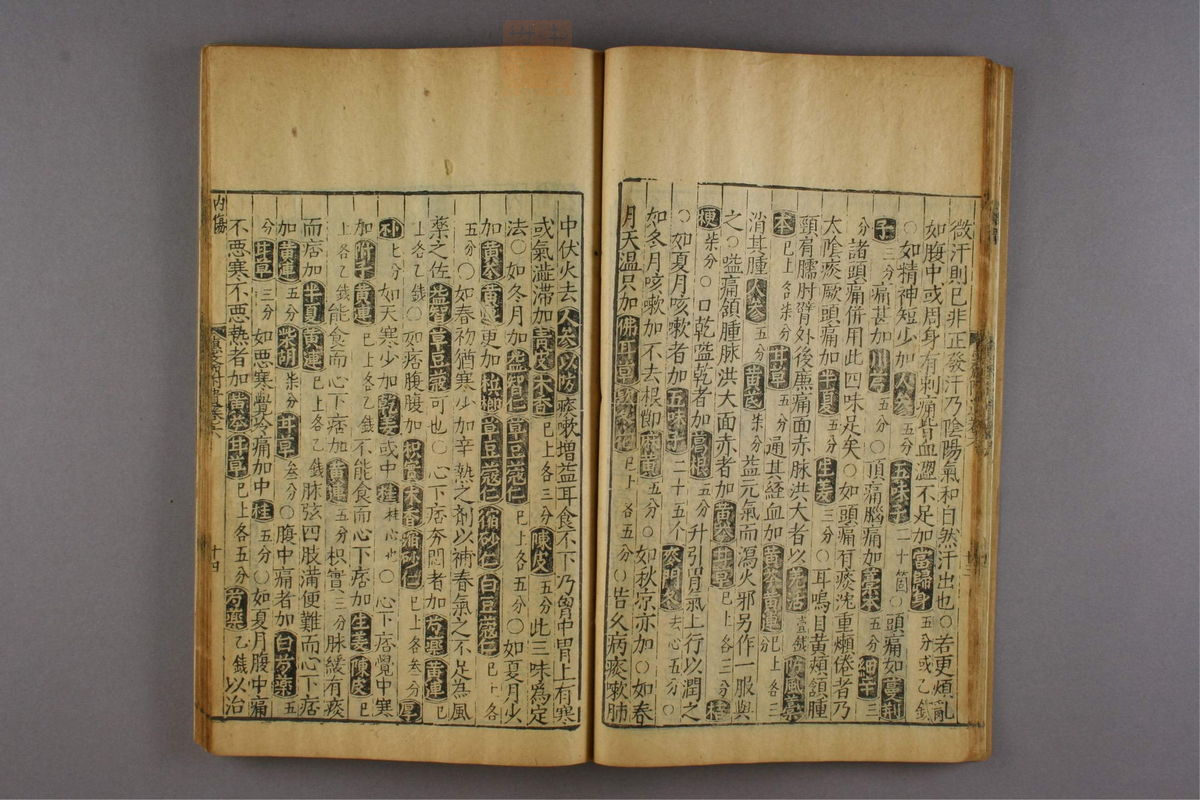 微汗則已非正發汗乃陰陽氣和自然汗出也○若更煩亂
如腹中或周身有刺痛皆血澀不足加當歸身五分或乙錢
○如精神短少加人參五分五味子二十箇○頭痛加蔓荆
子三分痛甚加川芎五分○頂痛腦痛加藁本五分細辛三
分諸頭痛併用此四味足矣○如頭痛有痰沈重懶倦者乃
太陰痰厥頭痛加半夏五分生姜三分○耳鳴目黄頰頷腫
頸肩臑肘臂外後廉痛面赤脉洪大者以羌活壹錢防風藁
本已上各柒分甘草五分通其經血加黄芩黄連已上各三分
消其腫人參五分黄芪柒分益元氣而瀉火邪另作一服與
之○嗌痛頷腫脉洪大面赤者加黄芩甘草已上各三分桔
梗柒分○口乾嗌乾者加葛根五分升引胃氣上行以潤之
○如夏月咳嗽者加五味子二十五个麥門冬去心五分○
如冬月咳嗽加不去根節麻黄五分○如秋凉亦加○如春
月天温只加佛耳草欵冬花已上各五分○若久病痰嗽肺
中伏火去人參以防痰嗽增益耳食不下乃胷中胃上有寒
或氣澁滞加青皮木香已上各三分陳皮五分此三味爲定
法○如冬月加益智仁草豆蔻仁已上各五分○如夏月少
加黄芩黄連更加梹榔草豆蔻仁縮砂仁白豆蔻仁已上各
五分○如春初猶寒少加辛熱之劑以補春氣之不足為風
藥之佐益智草豆蔻可也○心下痞夯悶者加芍藥黄連已
上各乙錢○如痞腹脹加枳實木香縮砂仁已上各叁分厚
朴七分如天寒少加乾姜或中桂桂心也○心下痞覺中寒
加附子黄連已上各乙錢不能食而心下痞加生姜陳皮已
上各乙錢能食而心下痞加黄連五分枳實三分脉緩有痰
而痞加半夏黄連已上各乙錢脉弦四肢滿便難而心下痞
加黄連五分柴胡柒分甘草叁分○腹中痛者加白芍藥五
分甘草三分如悪寒覺冷痛加中桂五分○如夏月腹中痛
不悪寒不悪熱者加黄芩甘草已上各五分芍藥乙錢以治
内傷
十四